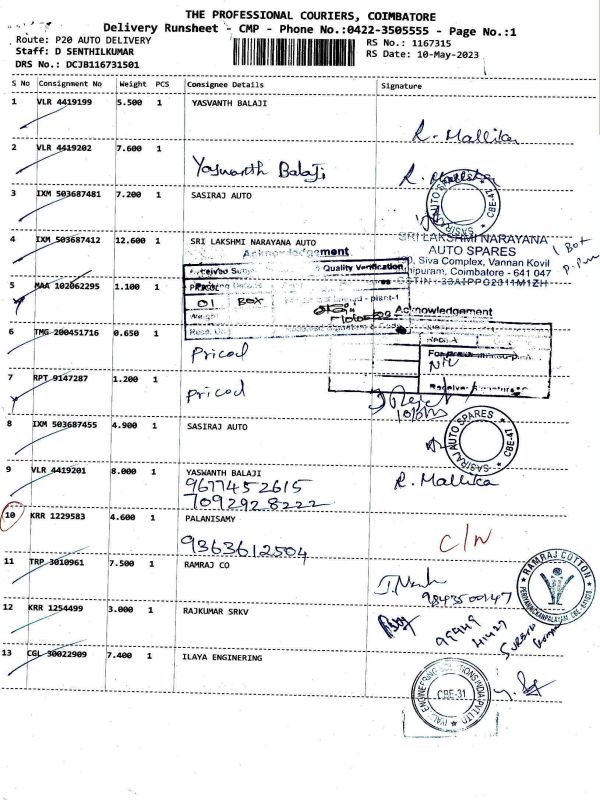 THE PROFESSIONAL COURIERS, COIMBATORE
Delivery Runsheet - CMP - Phone No.:0422-3505555 - Page No.:1
Route: P20 AUTO DELIVERY
RS No.: 1167315
Staff: D SENTHILKUMAR
RS Date: 10-May-2023
DRS No.: DCJB116731501
S No Consignment No Weight PCS Consignee Details Signature
1 VLR 4419199 5.500 1 YASVANTH BALAJI
R. Mallika
2 VLR 4419202 7.600 1
Yaswanth Balaji R. Mallika
3 IXM 503687481 7.200 1 SASIRAJ AUTO
SASIRAJ AUTO CBE-41
4 IXM 503687412 12.600 1 SRI LAKSHMI NARAYANA AUTO
SRI LAKSHMI NARAYANA
AUTO SPARES
Siva Complex, Vannan Kovil
Coimbatore - 641 047
1 Box
Acknowledgement
Quality Verification
5 MAA 102062295 1.100 1
PRICOL
01 BOX
Acknowledgement
6 TMG 200451716 0.650 1
Pricol
NIL
7 RPT 9147287 1.200 1
Pricol
8 IXM 503687455 4.900 1 SASIRAJ AUTO
SASIRAJ AUTO SPARES CBE-41
9 VLR 4419201 8.000 1 YASWANTH BALAJI
R. Mallika
9677452615
7092928222
10 KRR 1229583 4.600 1 PALANISAMY
C/N
9363612504
11 TRP 3010961 7.500 1 RAMRAJ CO
RAMRAJ COTTON
9843500147
12 KRR 1254499 3.000 1 RAJKUMAR SRKV
13 CGL 30022909 7.400 1 ILAYA ENGINERING
CBE-31